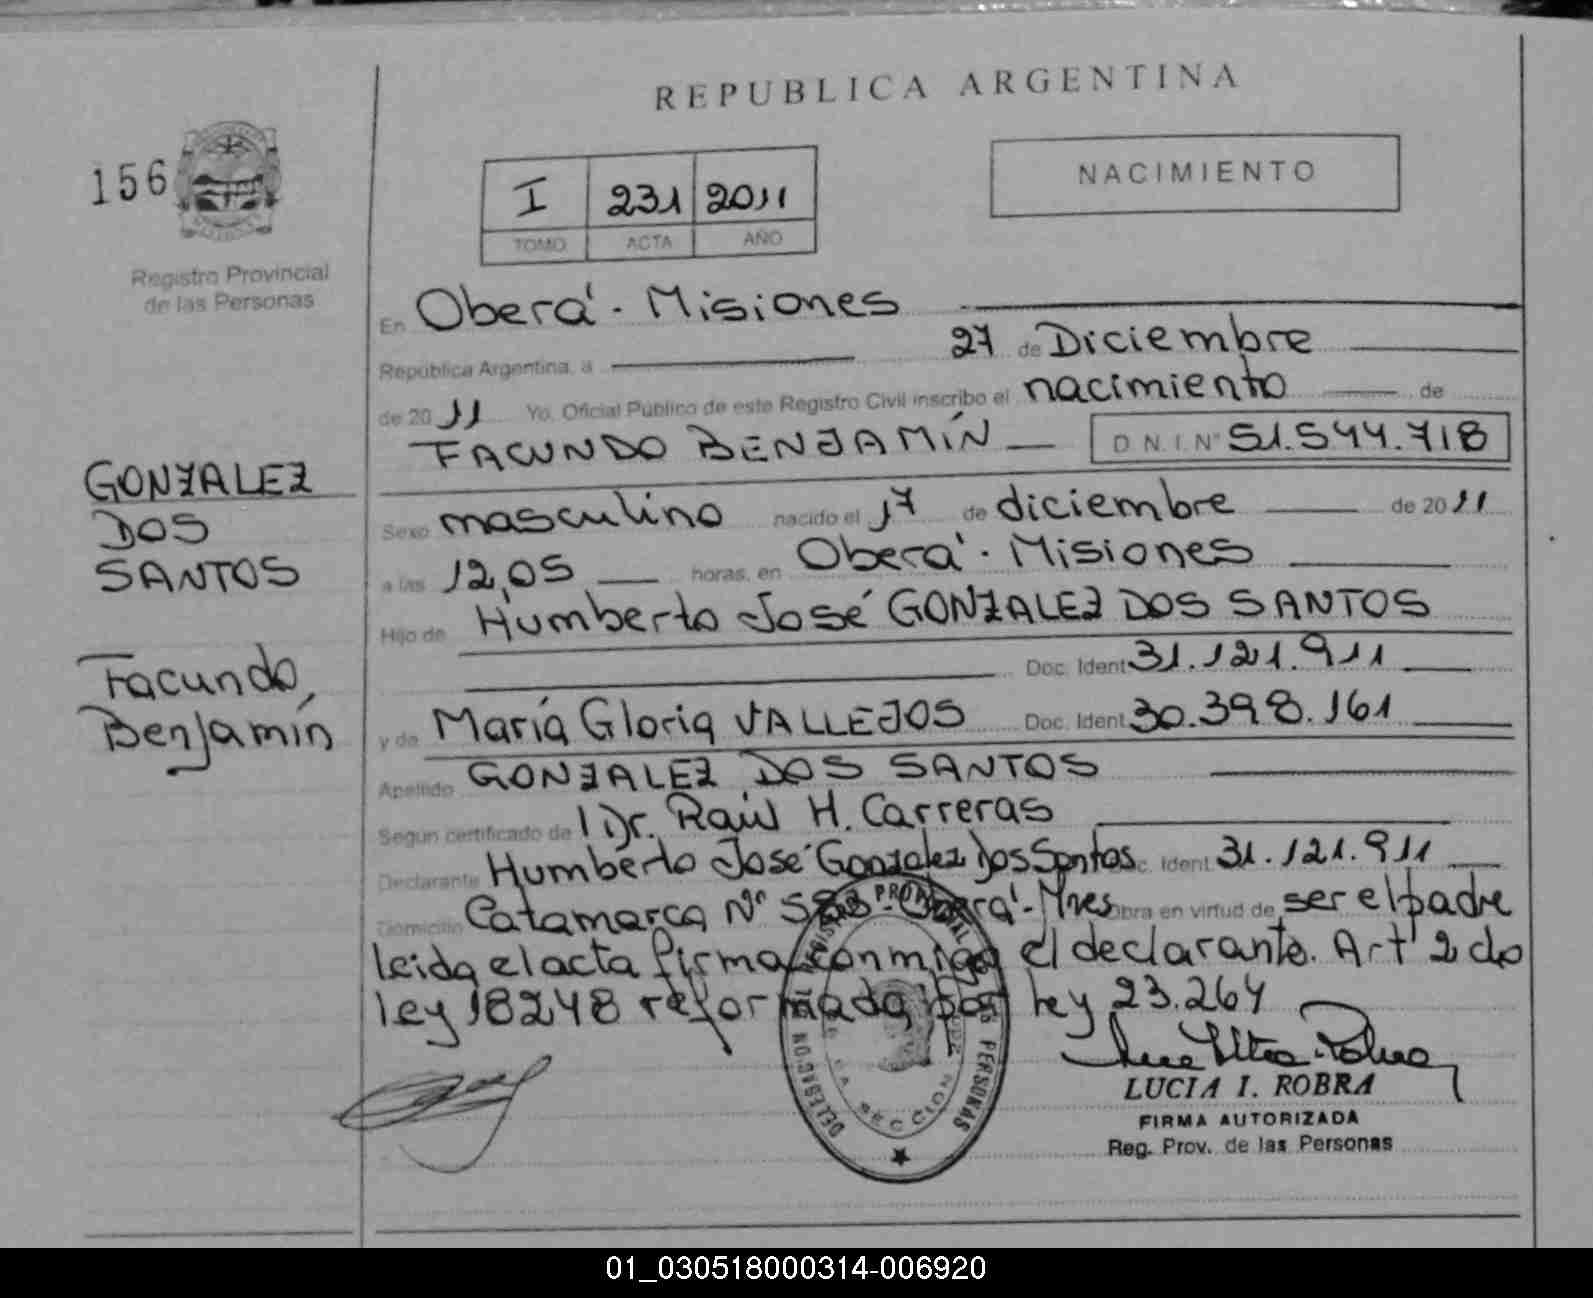 REPUBLICA ARGENTINA
156
NACIMIENTO
I 231 2011
TOMO ACTA AÑO
Registro Provincial
de las Personas
En Oberá - Misiones
República Argentina, a 27 de Diciembre
de 2011 Yo, Oficial Público de este Registro Civil inscribo el nacimiento de
FACUNDO BENJAMÍN D N I N° 51.544.718
GONZALEZ
DOS
SANTOS
Facundo,
Benjamín
Sexo masculino nacido el 17 de diciembre de 2011
a las 12,05 horas, en Oberá - Misiones
Hijo de Humberto José GONZALEZ DOS SANTOS
Doc. Ident 31.121.911
y de María Gloria VALLEJOS Doc. Ident. 30.398.161
Apellido GONZALEZ DOS SANTOS
Según certificado de Dr. Raúl H. Carreras
Declarante Humberto José Gonzalez Dos Santos c. Ident. 31.121.911
Domicilio Catamarca N° Oberá - Mnes Obra en virtud de ser el padre
leida el acta firma conmigo el declarante. Art 2 de
ley 18248 reformada por ley 23.264
LUCIA I. ROBRA
FIRMA AUTORIZADA
Reg. Prov. de las Personas
PERSONAS
SECCION
01_030518000314-006920